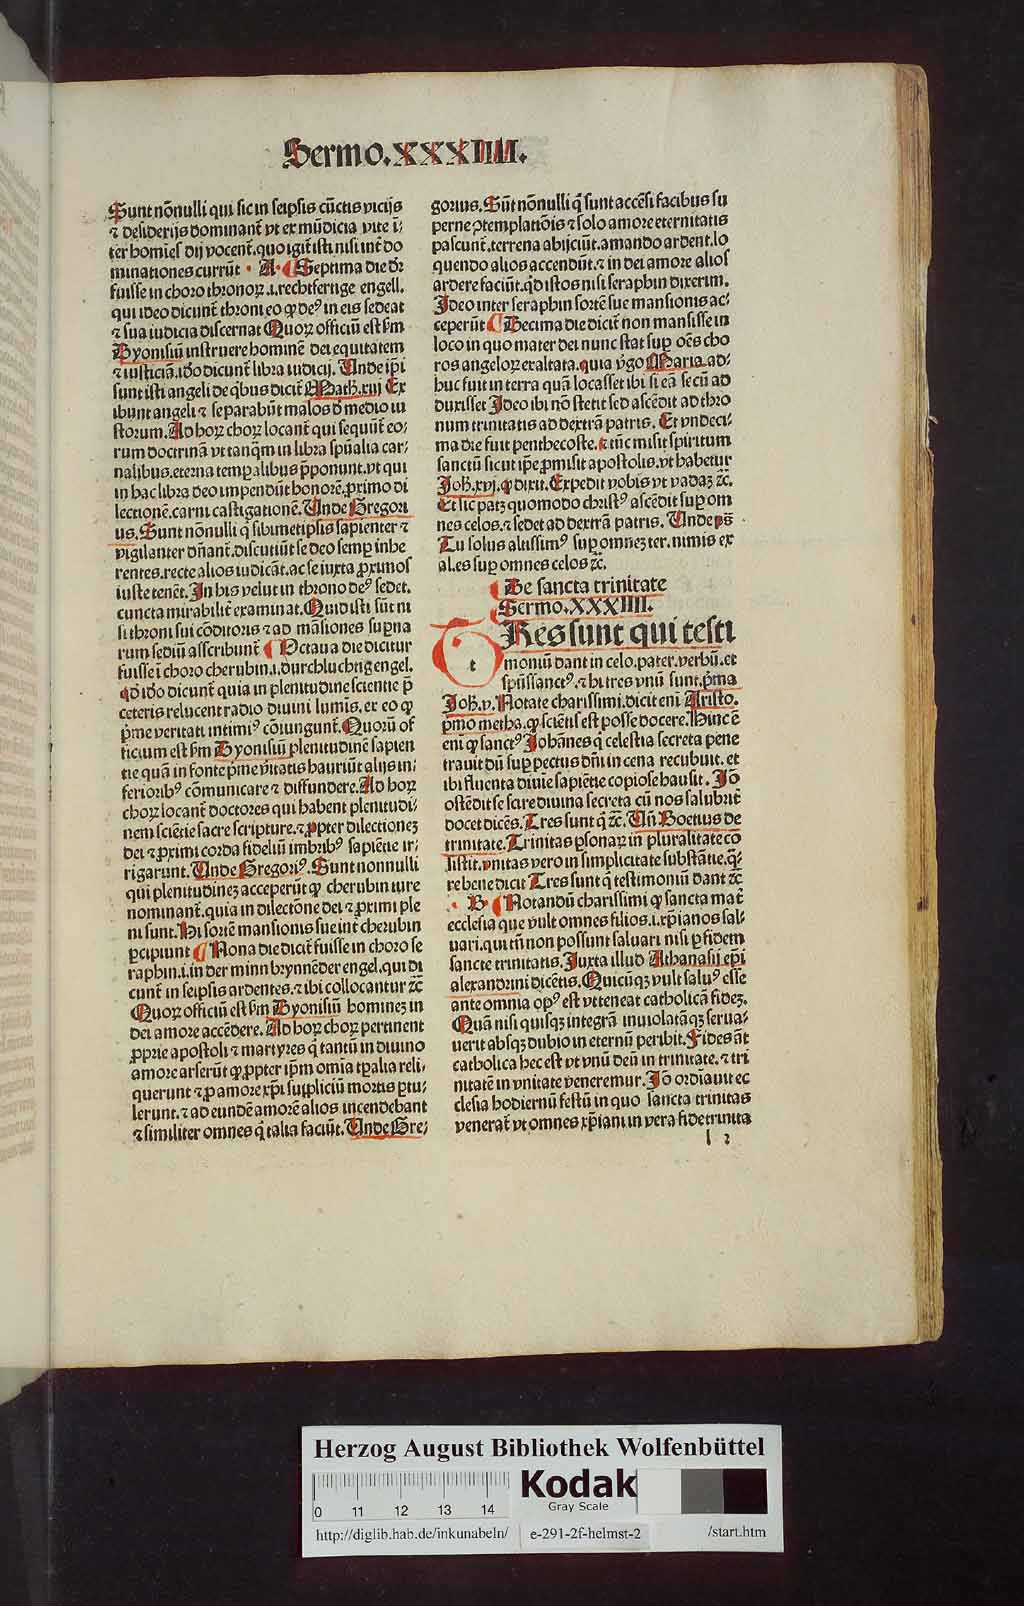 Sermo.XXXIIII.
Sunt nõnulli qui sic in seipsis cũctis vicijs
⁊ desiderijs dominant̃ vt ex mũdicia vite i-
ter homĩes dij vocent̃.quo igit̃ isti nisi int̃ do
minationes currũt · A· ¶ Septima die dr̃
fuisse in choro thronoꝝ.i.rechtfertige engell.
qui ideo dicunt̃ throni eo ꝙ deꝰ in eis sedeat
⁊ sua iudicia discernat Quoꝝ officiũ est ẜm
Dyonisiũ instruere hominẽ dei equitatem
⁊ iusticiã.iõo dicunt̃ libra iudicij. Unde ip̃i
sunt isti angeli de q̃bus dicit̃ Math.xiij Ex
ibunt angeli ⁊ separabũt malos d̃ medio iu
storum. Ad hoꝝ choꝝ locant̃ qui sequũt̃ eo-
rum doctrinã vt tanq̃m in libra sp̃ualia car-
nalibus.eterna temꝑalibus p̃ponunt.vt qui
in hac libra deo impendũt honorẽ.ꝓximo di
lectionẽ.carni castigationẽ. Unde Gregori
us. Sunt nõnulli q̃ sibimetipsis sapienter ⁊
vigilanter dñant̃.discutiũt se deo semꝑ inhe
rentes.recte alios iudicãt.ac se iuxta ꝓximos
iuste tenẽt. In his velut in throno deꝰ sedet.
cuncta mirabilit̃ examinat. Quid isti sũt ni
si throni sui cõditoris ⁊ ad mãsiones suꝑna
rum sediũ asscribunt̃ ¶ Octaua die dicitur
fuisse ĩ choro cherubin.i.durchluchtig engel.
qđ iõo dicunt̃ quia in plenitudine scientie p̃
ceteris relucent radio diuini lumĩs. ex eo ꝙ
p̃me veritati intimiꝰ cõiungunt̃. Quorũ of
ficium est ẜm Dyonisiũ plenitudinẽ sapien
tie quã in fonte p̃me ṽitatis hauriũt alijs in-
ferioribꝰ cõmunicare ⁊ diffundere. Ad hoꝝ
choꝝ locant̃ doctores qui habent plenitudi-
nem sciẽtie sacre scripture.⁊ ꝓpter dilectioneꝫ
dei ⁊ ꝓximi corda fideliũ imbribꝰ sapiẽtie ir-
rigarunt. Unde Gregoriꝰ. Sunt nonnulli
qui plenitudineꝫ acceperũt ꝙ cherubin iure
nominant̃.quia in dilectõne dei ⁊ ꝓximi ple
ni sunt. Hi sortẽ mansionis sue int̃ cherubin
ꝑcipiunt ¶ Nona die dicit̃ fuisse in choro se
raphin.i.in der minn brynnẽder engel.qui di
cunt̃ in seipsis ardentes.⁊ ibi collocantur ⁊c̃
Quoꝝ officiũ est ẜm Dyonisiũ homineꝫ in
dei amore accẽdere. Ad hoꝝ choꝝ pertinent
ꝓprie apostoli ⁊ martyres q̃ tantũ in diuino
amore arserũt ꝙ ꝓpter ip̃m omia tꝑalia reli-
querunt ⁊ ꝓ amore xp̃i suppliciũ mortis ꝑtu-
lerunt.⁊ ad eundẽ amorẽ alios incendebant
⁊ similiter omnes q̃ talia faciũt. Unde Gre-
gorius. Sũt nõnulli q̃ sunt accẽsi facibus su
perne ↄtemplatiõis ⁊ solo amore eternitatis
pascunt̃.terrena abijciũt.amando ardent.lo
quendo alios accendũt.⁊ in dei amore alios
ardere faciũt.qđ istos nisi seraphin dixerim.
Ideo inter seraphin sortẽ sue mansionis ac-
ceperũt ¶ Decima die dicit̃ non mansisse in
loco in quo mater dei nunc stat suꝑ oẽs cho
ros angeloꝝ exaltata. quia v̾go Maria ad-
huc fuit in terra quã locasset ibi si eã secũ ad
duxisset Ideo ibi nõ stetit sed ascẽdit ad thro
num trinitatis ad dextrã patris. Et vndeci-
ma die fuit penthecoste.⁊ tũc misit spiritum
sanctũ sicut ip̃e ꝓmisit apostolis.vt habetur
Joh.xvj. ꝙ dixit. Expedit vobis vt vadaꝫ ⁊c̃.
Et sic patꝫ quomodo christꝰ ascẽdit suꝑ om
nes celos.⁊ sedet ad dextrã patris. Unde ps̃
Tu solus altissimꝰ suꝑ omneꝫ ter.nimis ex
al.es suꝑ omnes celos ⁊c̃.
¶ De sancta trinitate
Sermo.XXXIIII.
TRes sunt qui testi
moniũ dant in celo.pater.verbũ.et
sp̃ussanctꝰ.⁊ hi tres vnũ sunt.p̃ma
Joh.v. Notate charissimi.dicit eni Aristo.
p̃mo metha.ꝙ sciẽtis est posse docere. Hinc ẽ
eni ꝙ sanctꝰ Johãnes q̃ celestia secreta pene
trauit dũ suꝑ pectus dñi in cena recubuit. et
ibi fluenta diuĩe sapiẽtie copiose hausit. Iõ
ostẽdit se scire diuina secreta cũ nos salubrit̃
docet dicẽs. Tres sunt q̃ ⁊c̃. Uñ Boetius de
trinitate. Trinitas ꝑsonaꝝ in pluralitate co
sistit.vnitas vero in simplicitate substãtie.q̃-
re bene dicit Tres sunt q̃ testimoniũ dant ⁊c̃
· B· ¶ Notandũ charissimi ꝙ sancta mat̃
ecclesia que vult omnes filios.i.xp̃ianos sal-
uari.qui tñ non possunt saluari nisi ꝑ fidem
sancte trinitatis. Iuxta illud Athanasij ep̃i
alexandrini dicẽtis. Quicũqꝫ vult saluꝰ esse
ante omnia opꝰ est vt teneat catholicã fideꝫ.
Quã nisi quisqꝫ integrã inuiolatãqꝫ serua-
uerit absqꝫ dubio in eternũ peribit. Fides ãt
catholica hec est vt vnũ deũ in trinitate.⁊ tri
nitatẽ in vnitate veneremur. Iõ ordĩauit ec
clesia hodiernũ festũ in quo sancta trinitas
venerat̃ vt omnes xp̃iani in vera fide trinita
l 2
Herzog August Bibliothek Wolfenbüttel
0 11 12 13 14
Kodak
Gray Scale
http://diglib.hab.de/inkunabeln/ e-291-2f-helmst-2 /start.htm